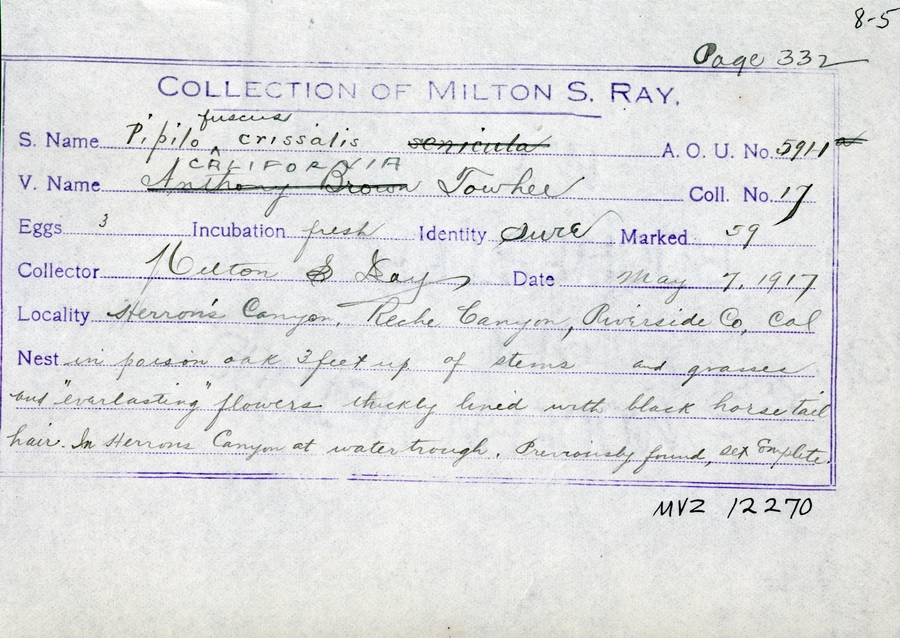 8-5
Page 332
COLLECTION OF MILTON S. RAY.
fuscus
S. Name Pipilo ^ crissalis senicula A. O. U. No. 591.1
CALIFORNIA
V. Name Anthony Brown Towhee Coll. No. 17
Eggs 3 Incubation fresh Identity sure Marked 59
Collector Milton S Ray Date May 7, 1917
Locality Herron's Canyon, Reche Canyon, Riverside Co, Cal
Nest in poison oak 3 feet up of stems and grasses
and "everlasting" flowers thickly lined with black horse tail
hair. In Herrons Canyon at watertrough. Previously found, set complete.
MVZ 12270